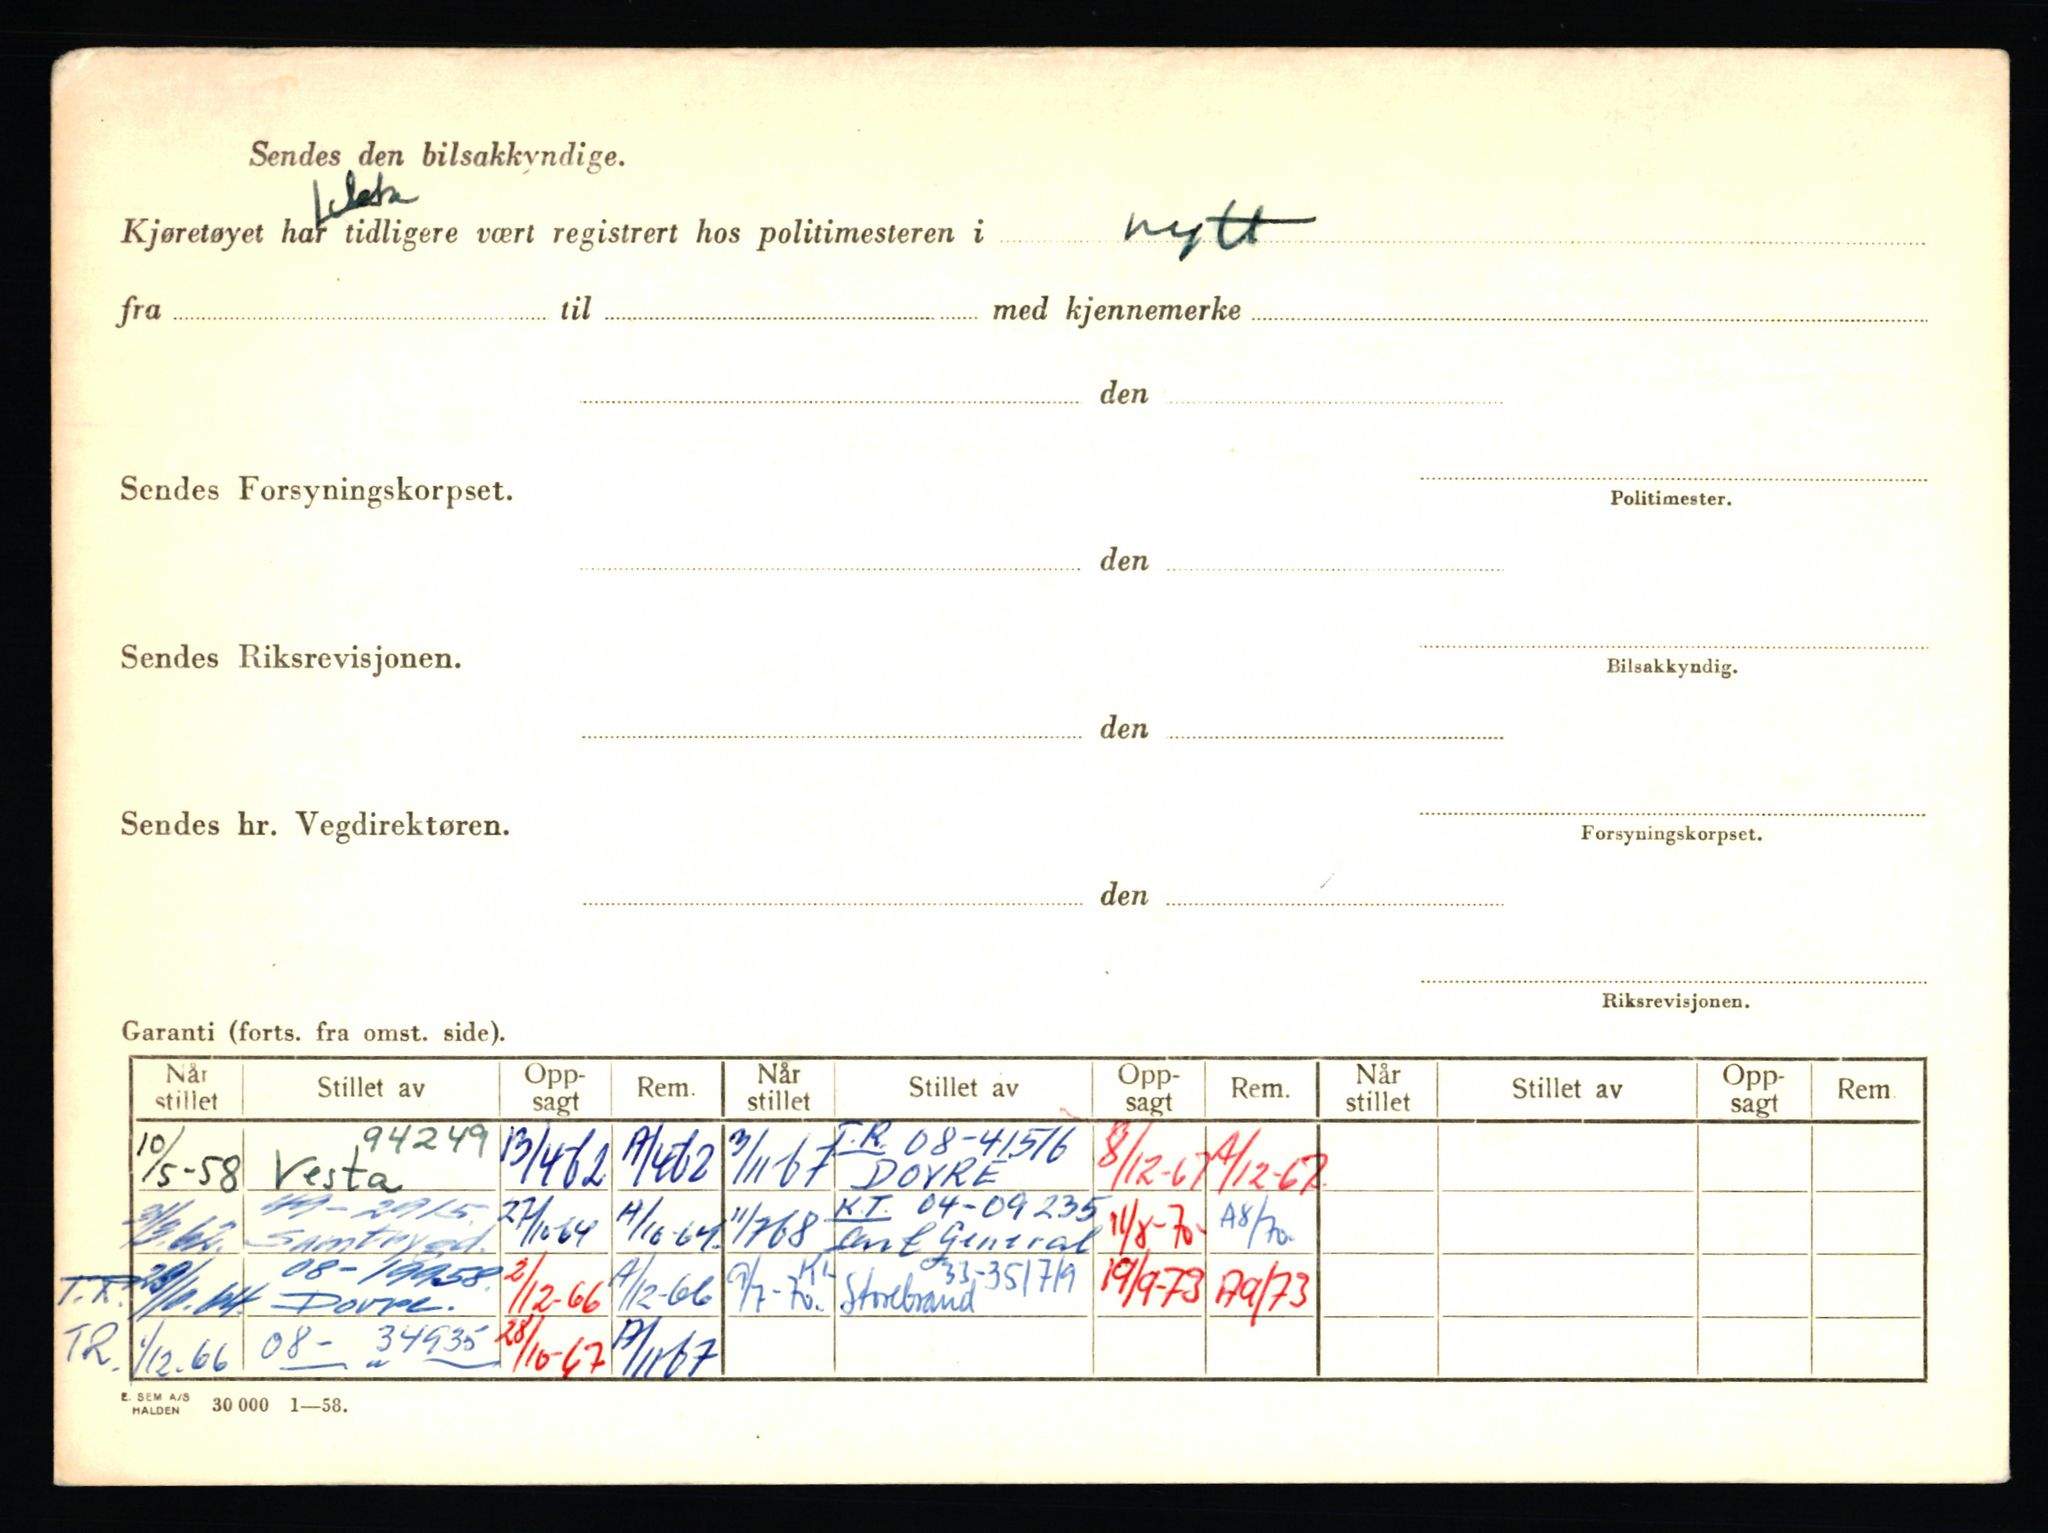 Sendes den bilsakkyndige.
ikke
Kjøretøyet har tidligere vært registrert hos politimesteren i nytt
fra til med kjennemerke
den
Sendes Forsyningskorpset.
Politimester.
den
Sendes Riksrevisjonen.
Bilsakkyndig.
den
Sendes hr. Vegdirektøren.
Forsyningskorpset.
den
Riksrevisjonen.
Garanti (forts. fra omst. side).
Når stillet Stillet av Opp-sagt Rem. Når stillet Stillet av Opp-sagt Rem. Når stillet Stillet av Opp-sagt Rem
94249 T.R. 08-41516
10/5-58 Vesta 13/4-62 A/4-62 3/11-67 DOVRE 8/12-67 A/12-67
49-2915. K.T. 04-09235
Samtrygd. 27/10-64 A/10-64. 11/7-68 General 11/8-70- A8/70.
08-19958. Kl 33-351719
T.R. Dovre. 2/12-66 A/12-66 9/7-70. Storebrand 19/9-73 A9/73
T.R. 1/12-66 08- " 34935 28/10-67 A/11-67
E. SEM A/S
HALDEN 30 000 1—58.